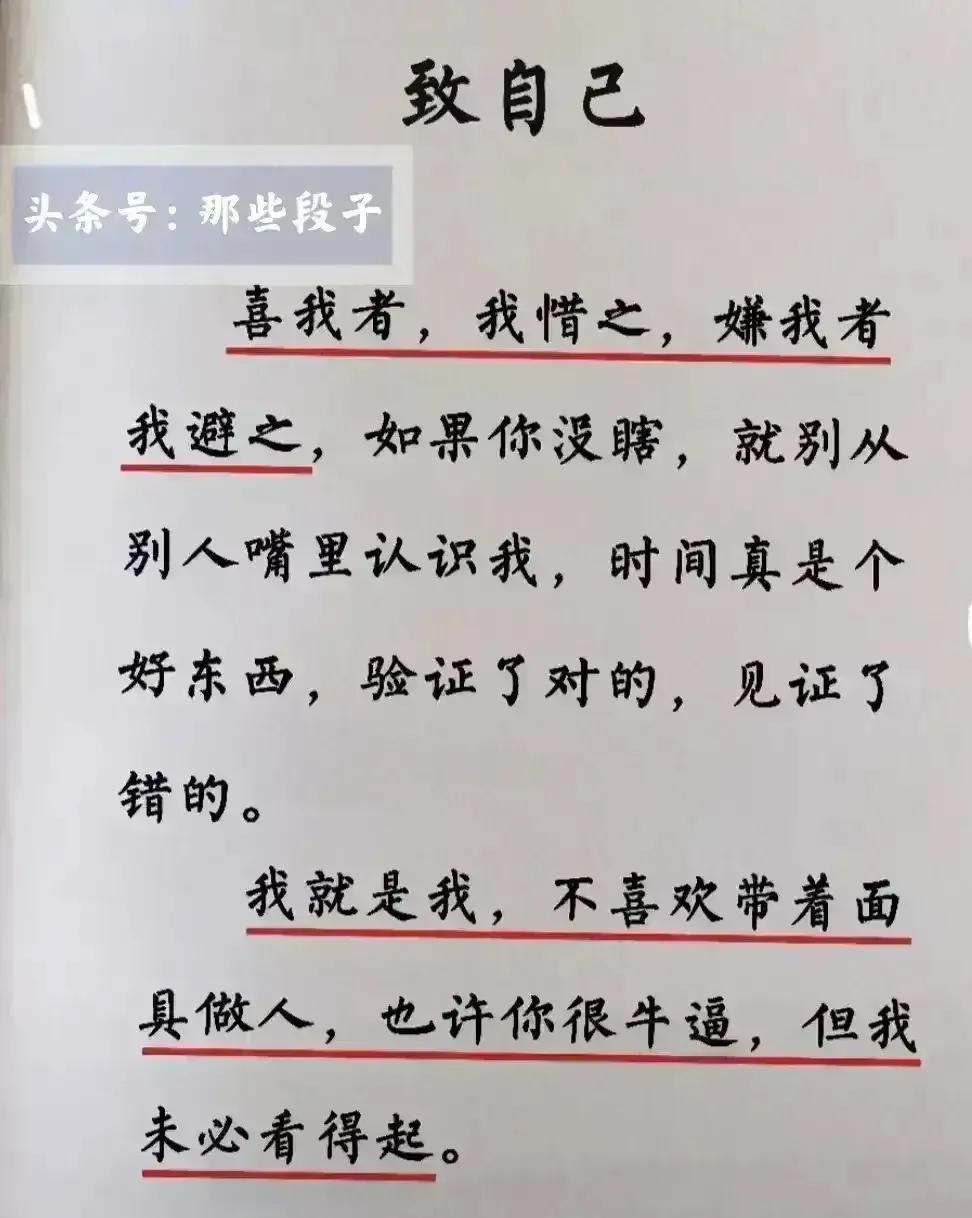 致自己
头条号：那些段子
喜我者，我惜之，嫌我者
我避之，如果你没瞎，就别从
别人嘴里认识我，时间真是个
好东西，验证了对的，见证了
错的。
我就是我，不喜欢带着面
具做人，也许你很牛逼，但我
未必看得起。